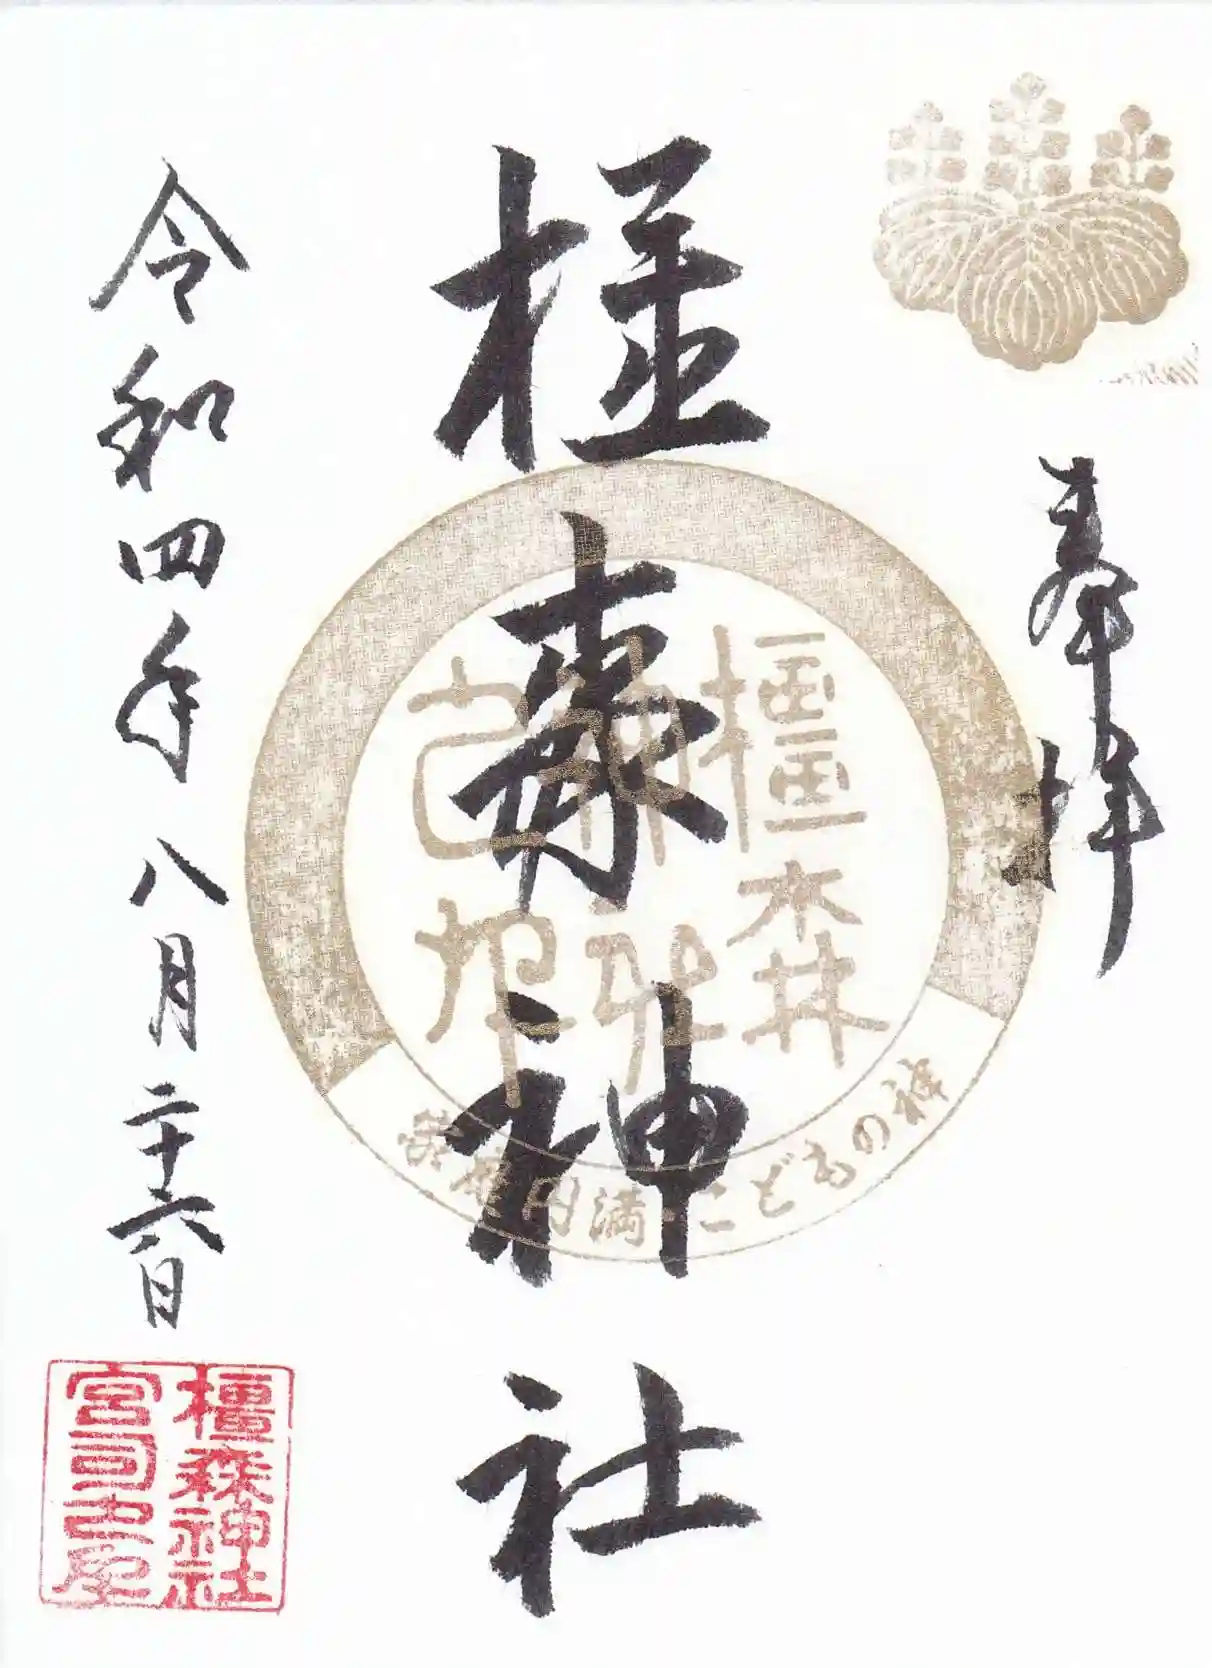 奉拝
橿森神社
令和四年八月二十六日
橿森
神社
家庭円満・こどもの神
橿森神社
宮司之印